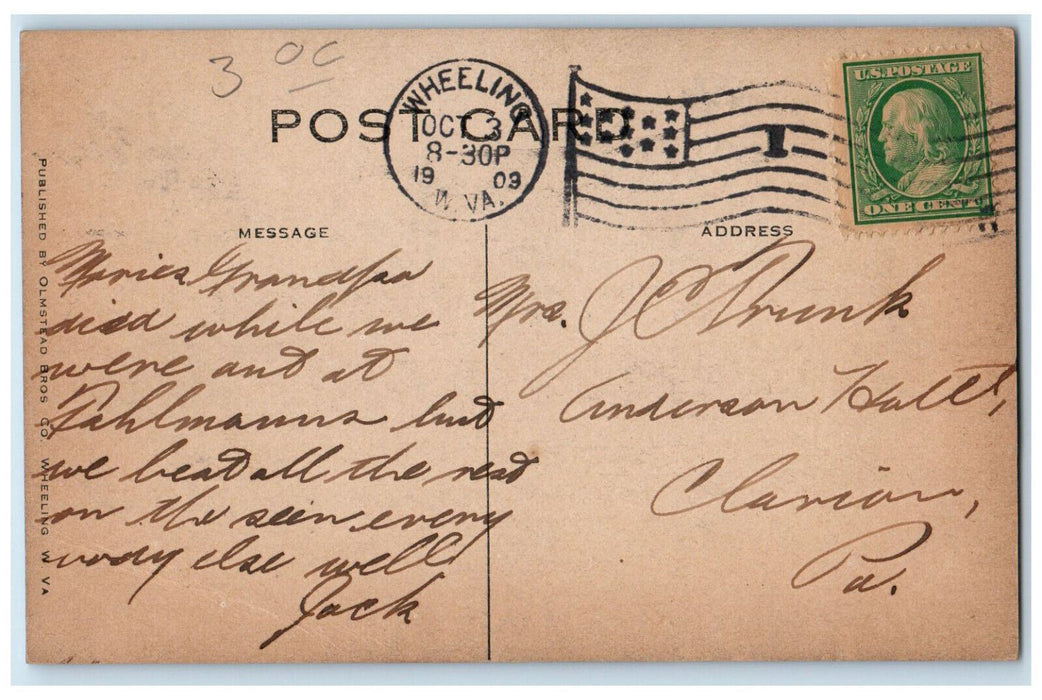 3 oc
POST CARD
WHEELING
OCT 3
8-30P
19 09
W. VA.
1
U.S. POSTAGE
ONE CENT
MESSAGE
ADDRESS
PUBLISHED BY OLMSTEAD BROS CO. WHEELING W VA
Maries Grandpa
died while we
were out at
Pahlmanns but
we beat all the rest
on the seen every
body else well
Jack
Mrs. J C Strunk
Anderson Hotel,
Clarion,
Pa.